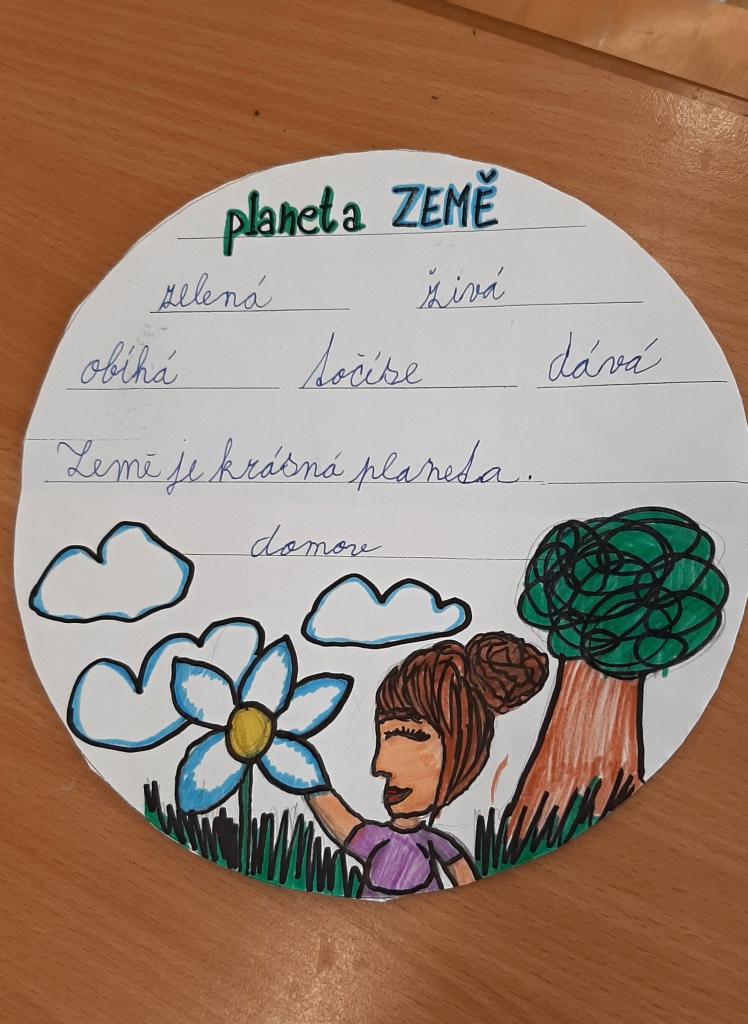 planeta ZEMĚ
zelená živá
obíhá točíse dává
Země je krásná planeta.
domov